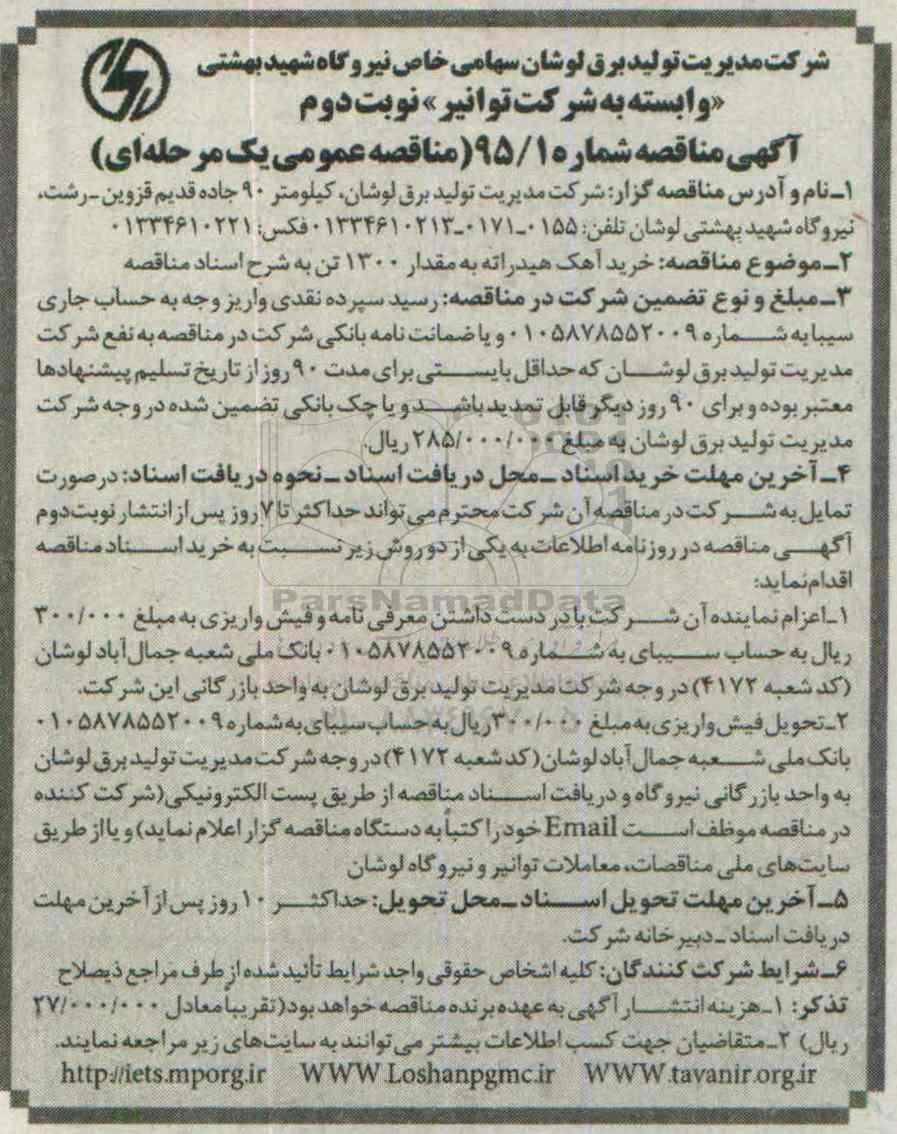 شرکت مدیریت تولید برق لوشان سهامی خاص نیروگاه شهید بهشتی
«وابسته به شرکت توانیر» نوبت دوم
آگهی مناقصه شماره ۹۵/۱ (مناقصه عمومی یک مرحله‌ای)
۱ـ نام و آدرس مناقصه گزار: شرکت مدیریت تولید برق لوشان، کیلومتر ۹۰ جاده قدیم قزوین ـ رشت،
نیروگاه شهید بهشتی لوشان تلفن: ۰۱۵۵ـ۰۱۷۱ـ۰۱۳۳۴۶۱۰۲۱۳ فکس: ۰۱۳۳۴۶۱۰۲۲۱
۲ـ موضوع مناقصه: خرید آهک هیدراته به مقدار ۱۳۰۰ تن به شرح اسناد مناقصه
۳ـ مبلغ و نوع تضمین شرکت در مناقصه: رسید سپرده نقدی واریز وجه به حساب جاری
سیبا به شماره ۰۱۰۵۸۷۸۵۵۲۰۰۹ و یا ضمانت نامه بانکی شرکت در مناقصه به نفع شرکت
مدیریت تولید برق لوشان که حداقل بایستی برای مدت ۹۰ روز از تاریخ تسلیم پیشنهادها
معتبر بوده و برای ۹۰ روز دیگر قابل تمدید باشد و یا چک بانکی تضمین شده در وجه شرکت
مدیریت تولید برق لوشان به مبلغ ۲۸۵/۰۰۰/۰۰۰ ریال.
۴ـ آخرین مهلت خرید اسناد ـ محل دریافت اسناد ـ نحوه دریافت اسناد: در صورت
تمایل به شرکت در مناقصه آن شرکت محترم می تواند حداکثر تا ۷ روز پس از انتشار نوبت دوم
آگهی مناقصه در روزنامه اطلاعات به یکی از دو روش زیر نسبت به خرید اسناد مناقصه
اقدام نماید:
۱ـ اعزام نماینده آن شرکت با در دست داشتن معرفی نامه و فیش واریزی به مبلغ ۳۰۰/۰۰۰
ریال به حساب سیبای به شماره ۰۱۰۵۸۷۸۵۵۲۰۰۹ بانک ملی شعبه جمال آباد لوشان
(کد شعبه ۴۱۷۲) در وجه شرکت مدیریت تولید برق لوشان به واحد بازرگانی این شرکت.
۲ـ تحویل فیش واریزی به مبلغ ۳۰۰/۰۰۰ ریال به حساب سیبای به شماره ۰۱۰۵۸۷۸۵۵۲۰۰۹
بانک ملی شعبه جمال آباد لوشان (کد شعبه ۴۱۷۲) در وجه شرکت مدیریت تولید برق لوشان
به واحد بازرگانی نیروگاه و دریافت اسناد مناقصه از طریق پست الکترونیکی (شرکت کننده
در مناقصه موظف است Email خود را کتباً به دستگاه مناقصه گزار اعلام نماید) و یا از طریق
سایت‌های ملی مناقصات، معاملات توانیر و نیروگاه لوشان
۵ـ آخرین مهلت تحویل اسناد ـ محل تحویل: حداکثر ۱۰ روز پس از آخرین مهلت
دریافت اسناد ـ دبیرخانه شرکت.
۶ـ شرایط شرکت کنندگان: کلیه اشخاص حقوقی واجد شرایط تأئید شده از طرف مراجع ذیصلاح
تذکر: ۱ـ هزینه انتشار آگهی به عهده برنده مناقصه خواهد بود (تقریباً معادل ۲۷/۰۰۰/۰۰۰
ریال) ۲ـ متقاضیان جهت کسب اطلاعات بیشتر می توانند به سایت‌های زیر مراجعه نمایند.
http://iets.mporg.ir WWW.Loshanpgmc.ir WWW.tavanir.org.ir
ParsNamadData